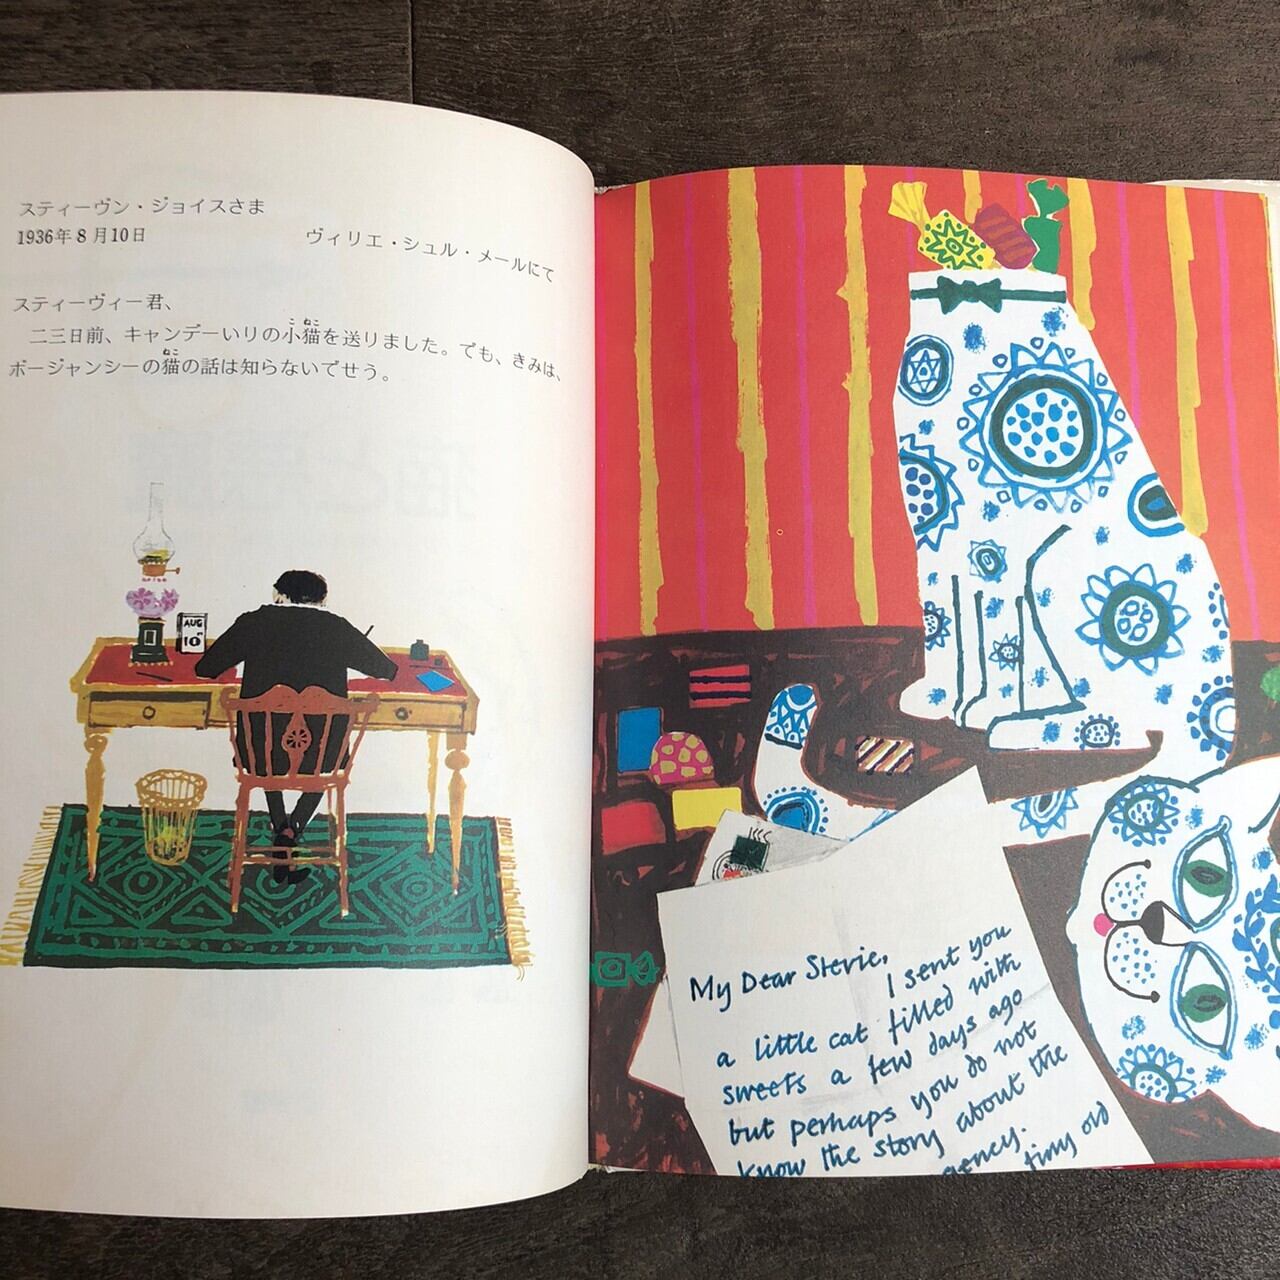 スティーヴン・ジョイスさま
1936年8月10日
ヴィリエ・シュル・メールにて
スティーヴィー君、
二三日前、キャンデーいりの小猫を送りました。でも、きみは、
ボージャンシーの猫の話は知らないでせう。
AUG
10
My Dear Stevie,
I sent you
a little cat filled with
sweets a few days ago
but perhaps you do not
know the story about the
gency.
tiny old